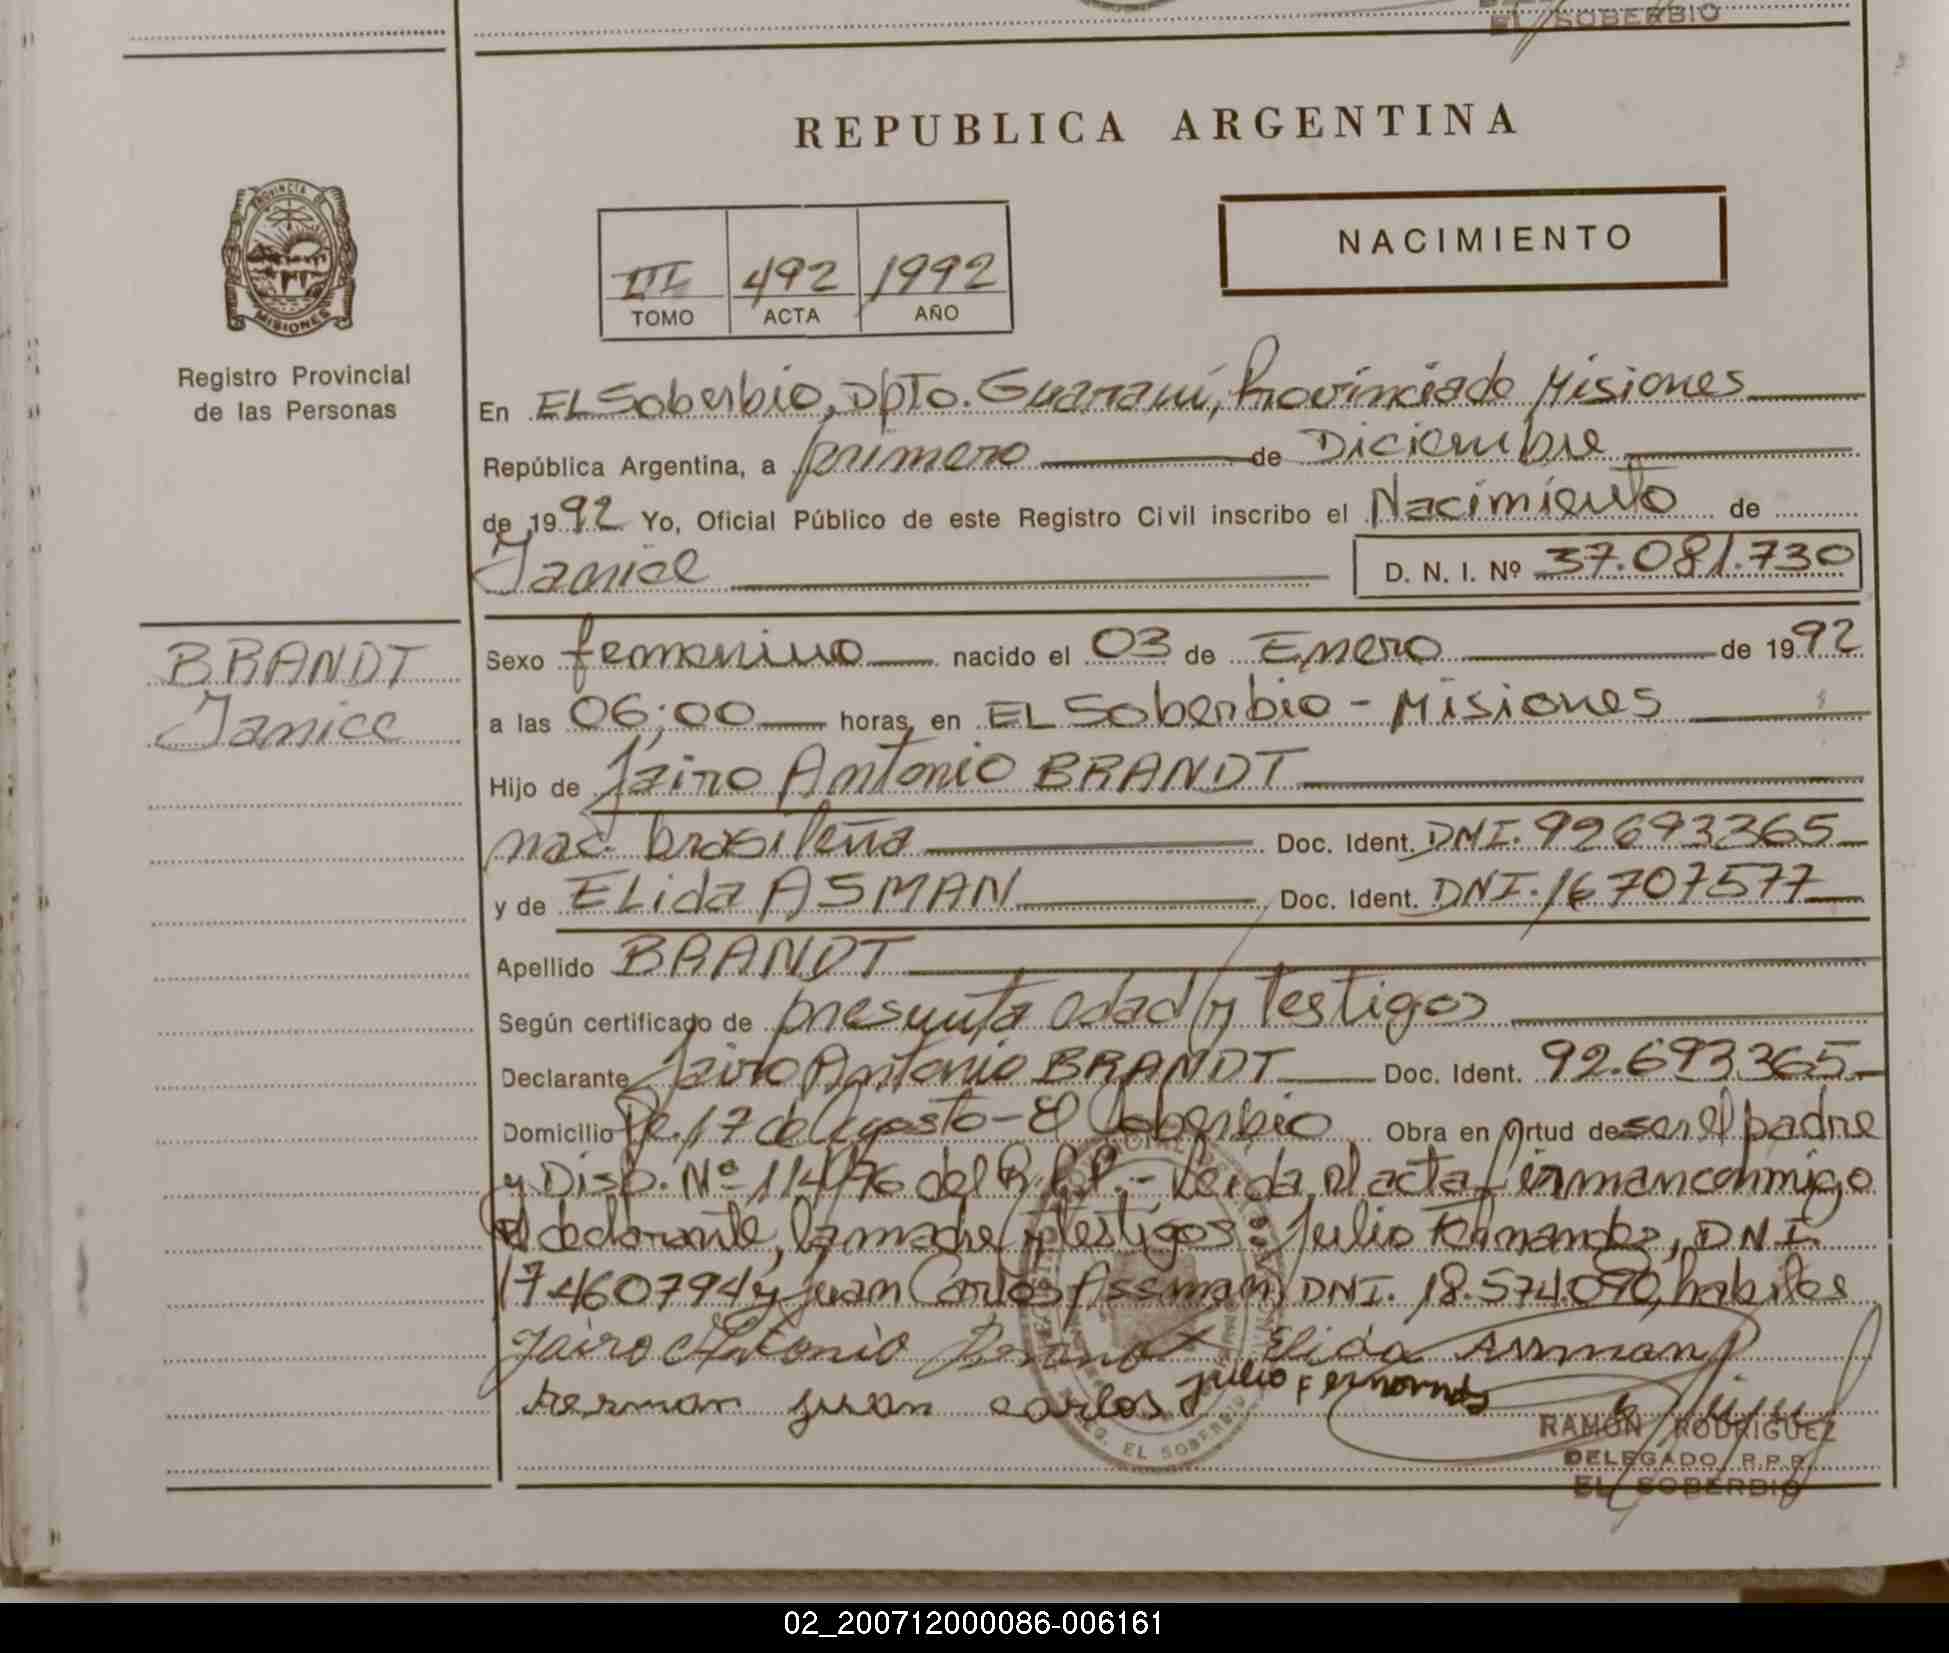 EL SOBERBIO
REPUBLICA ARGENTINA
PROVINCIA
MISIONES
Registro Provincial
de las Personas
III 492 1992
TOMO ACTA AÑO
NACIMIENTO
En EL Soberbio, Dpto. Guaraní, Provincia de Misiones
República Argentina, a primero de Diciembre
de 1992 Yo, Oficial Público de este Registro Civil inscribo el Nacimiento de
Janice D. N. I. Nº 37.081.730
BRANDT
Janice
Sexo femenino nacido el 03 de Enero de 1992
a las 06;00 horas, en EL Soberbio - Misiones
Hijo de Jairo Antonio BRANDT
nac. brasileña Doc. Ident. DNI. 92693365
y de ELida ASMAN Doc. Ident. DNI. 16707577
Apellido BRANDT
Según certificado de presunta edad y testigos
Declarante Jairo Antonio BRANDT Doc. Ident. 92.693.365
Domicilio 17 de Agosto - El Soberbio Obra en virtud de ser el padre
y Disp. Nº 114/76 del R.P.P.- Leida el acta firman conmigo
el declarante, la madre y testigos: Julio Fernandez, DNI
17.460794 y Juan Carlos Assman, DNI. 18.574.090, habiles
Jairo Antonio Brandt Elida Assman
juan carlos Julio Fernandez
RAMÓN RODRIGUEZ
DELEGADO R.P.P.
EL SOBERBIO
EL SOBERBIO
02_200712000086-006161